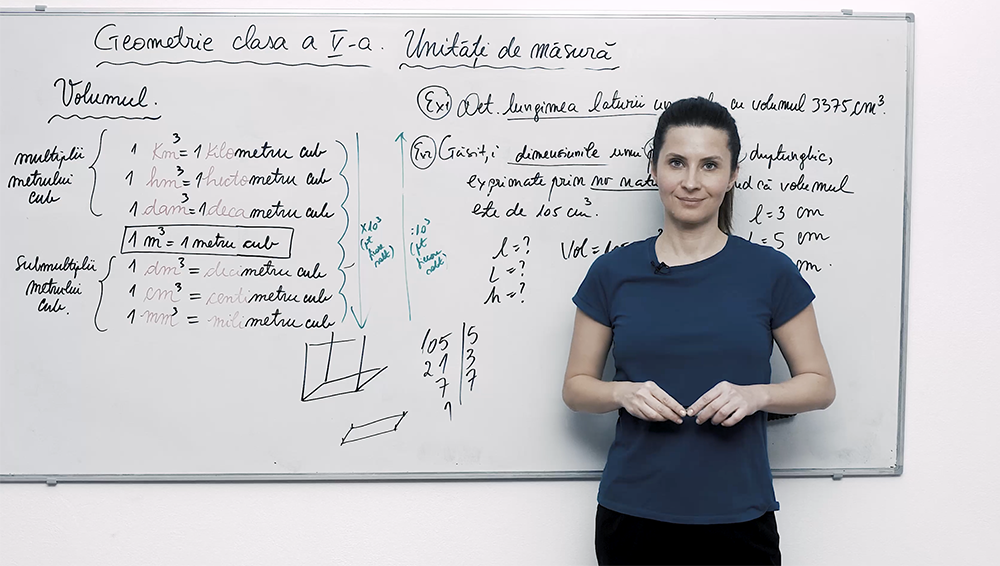 Geometrie clasa a V-a. Unități de măsură
Volumul.
multiplii
metrului
cub
1 km³ = 1 kilometru cub
1 hm³ = 1 hectometru cub
1 dam³ = 1 decametru cub
1 m³ = 1 metru cub
Submultiplii
metrului
cub.
1 dm³ = decimetru cub
1 cm³ = centimetru cub
1 mm³ = milimetru cub
x10³
(pt
:10³
(pt
Ex1 Det. lungimea laturii cu volumul 3375 cm³.
Ex2 Găsiți dimensiunile unui
exprimate prin nr. volumul
este de 105 cm³.
l = ?
L = ?
h = ?
Vol =
l = 3 cm
= 5 cm
cm.
105 5
21 3
7 7
1